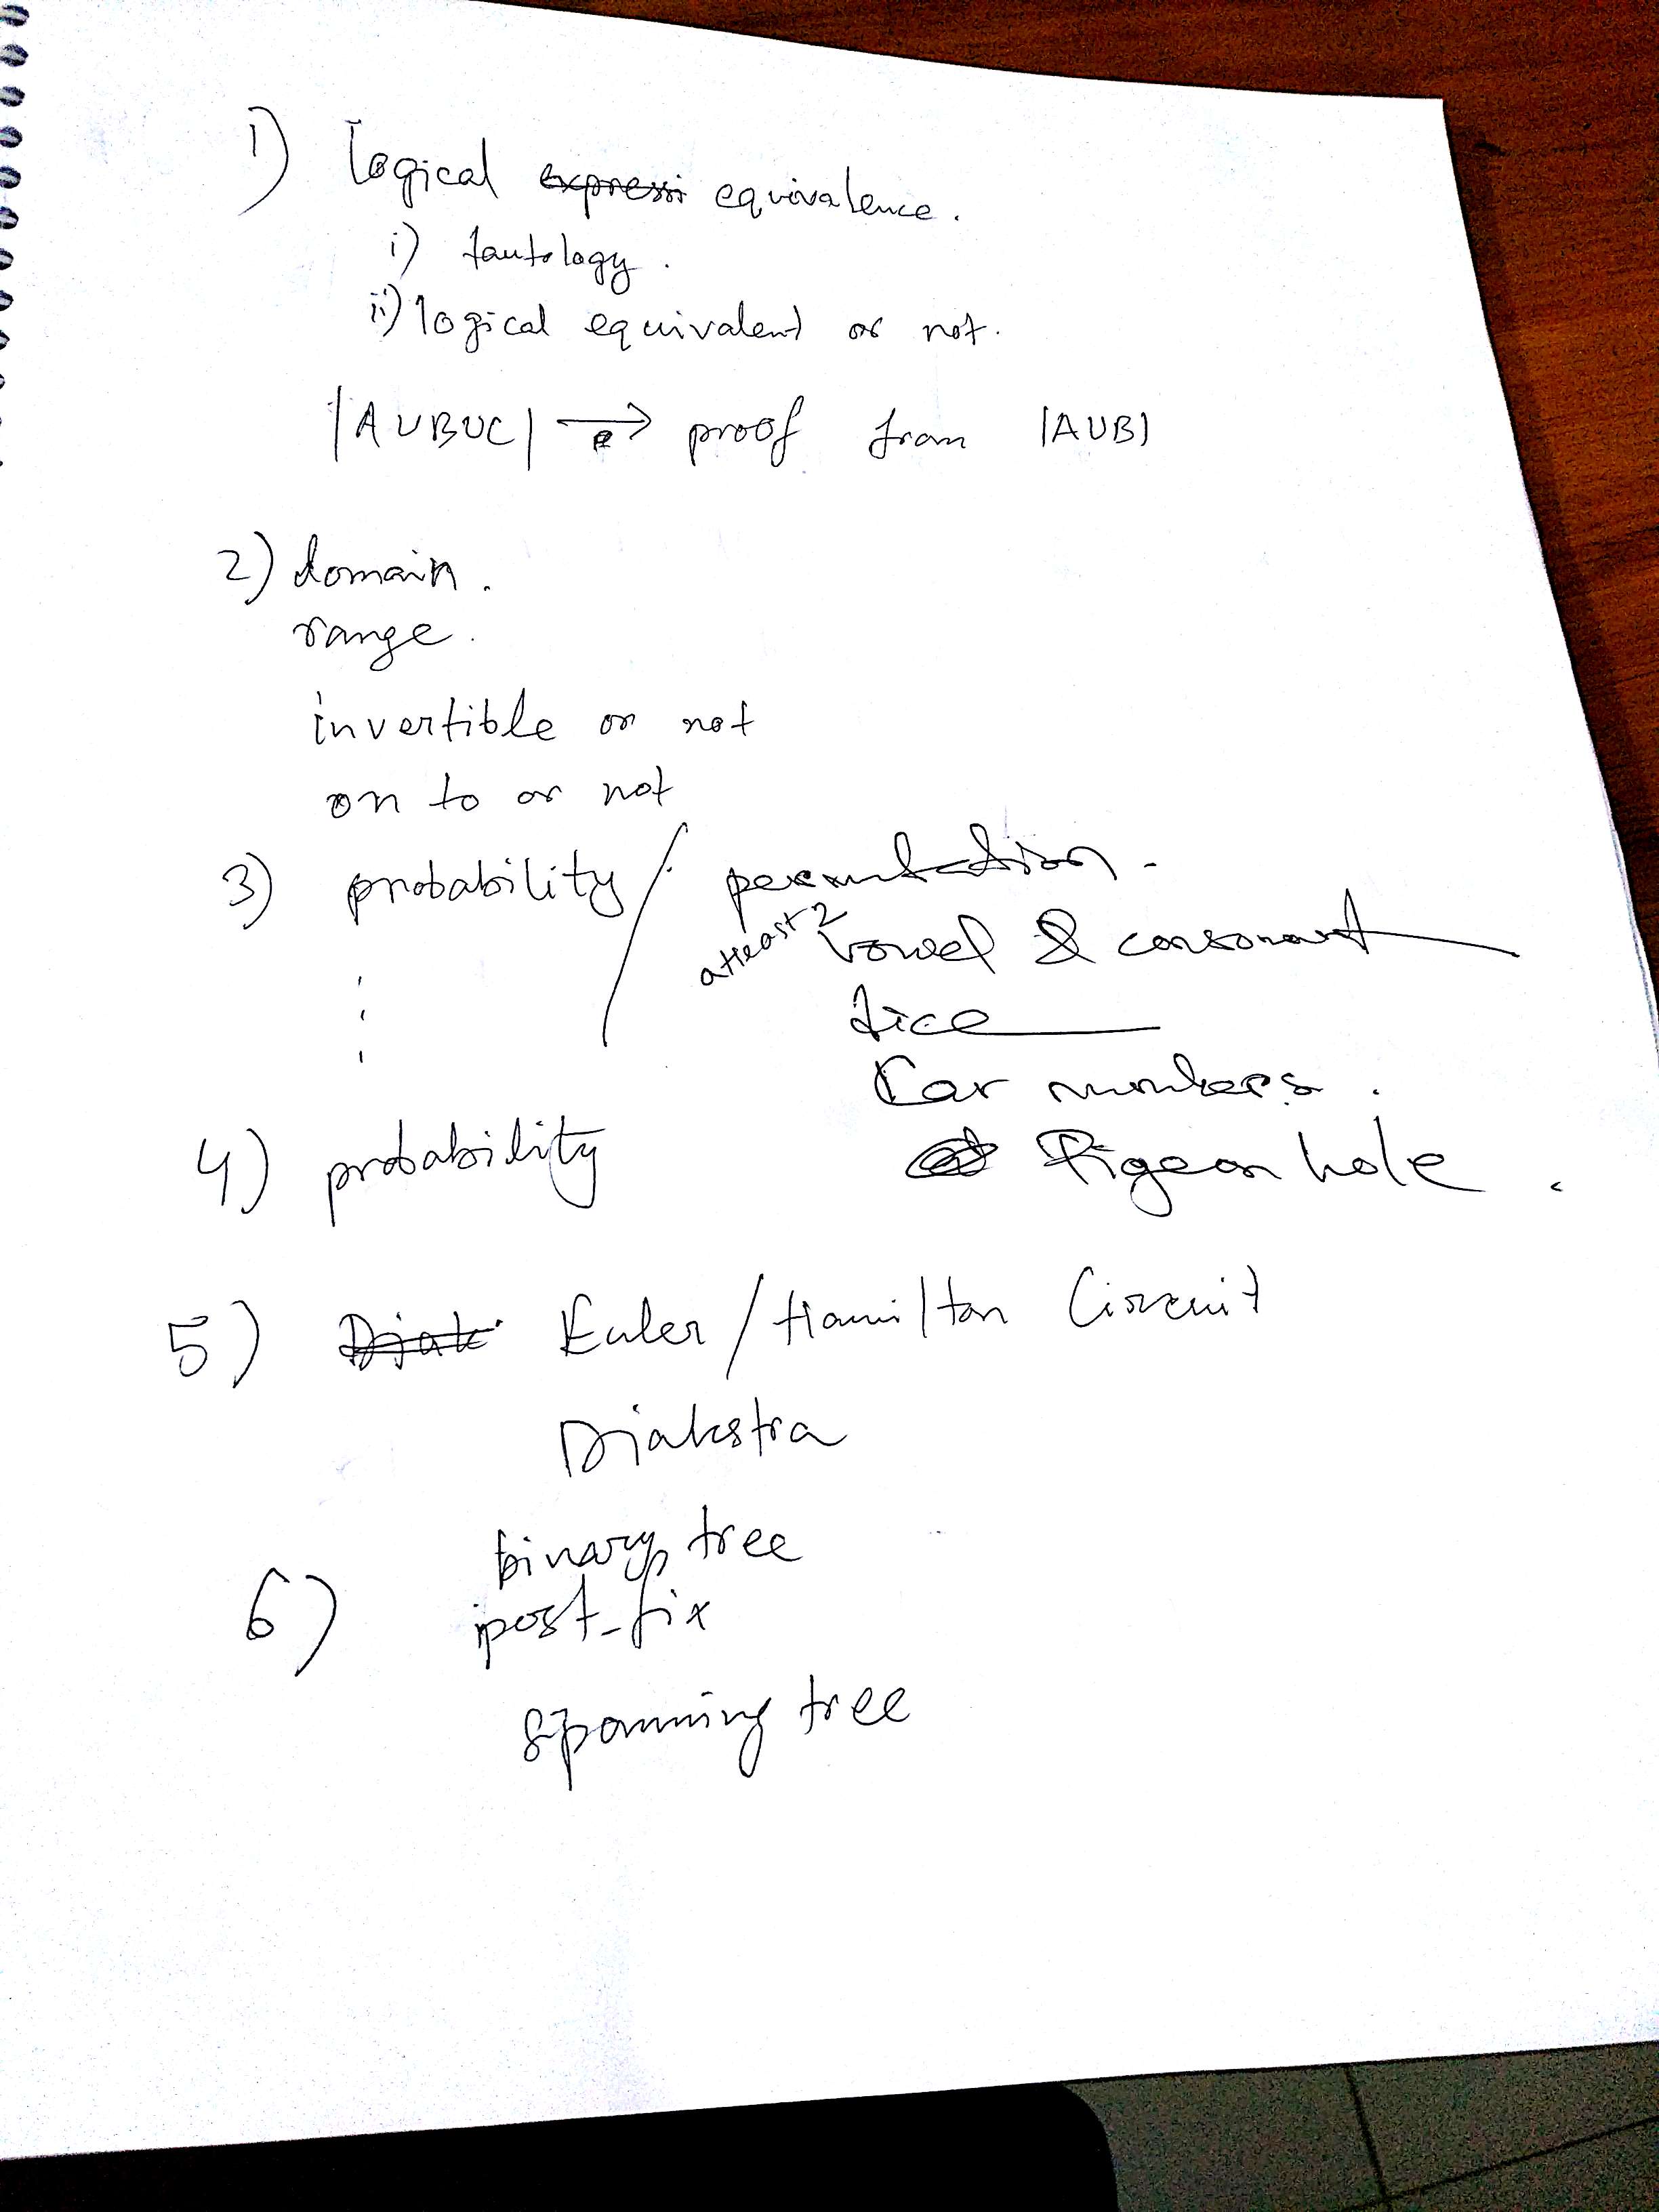 1) Logical expressi equivalence.
i) tautology.
ii) logical equivalent or not.
|AUBUC| → proof from |AUB|
2) domain.
range.
invertible or not
on to or not
3) probability / permutation.
atleast 2 vowel & consonant
dice
Car numbers.
4) probability
Pigeon hole.
5) Djak Euler / Hamilton Circuit
Djakstra
binary tree
6) post-fix
spanning tree